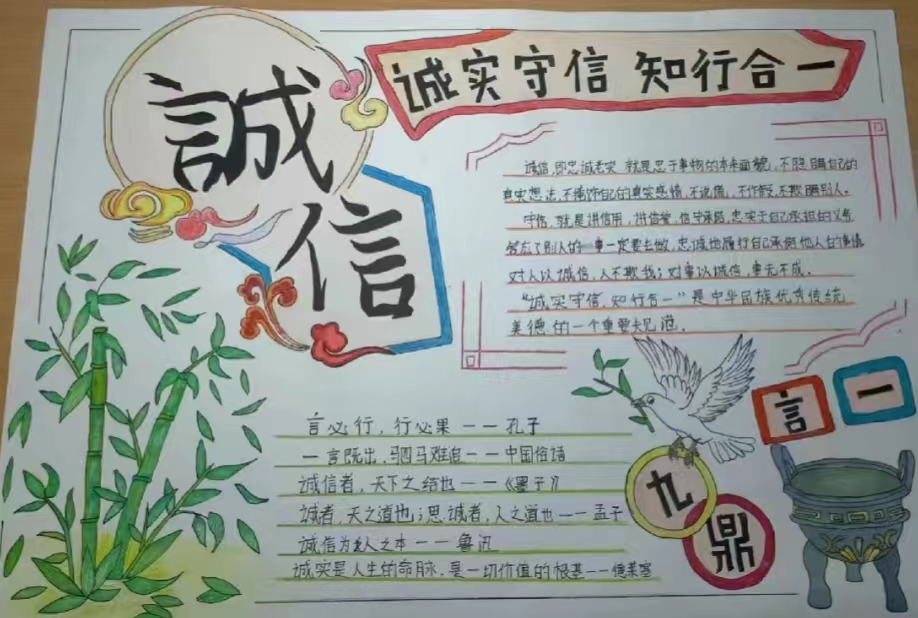 誠信
诚实守信 知行合一
诚信,即忠诚老实,就是忠于事物的本来面貌,不隐瞒自己的
真实想法,不掩饰自己的真实感情,不说谎,不作假,不欺瞒别人。
守信,就是讲信用,讲信誉,信守承诺,忠实于自己承担的义务
答应了别人的事一定要去做,忠诚地履行自己承担
对人以诚信,人不欺我;对事以诚信,事无不成。
“诚实守信,知行合一”是中华民族优秀传统
美德的一个重要
言必行,行必果——孔子
一言既出,驷马难追——中国俗语
诚信者,天下之结也——《墨子》
诚者,天之道也;思诚者,人之道也——孟子
诚信为人之本——鲁迅
诚实是人生的命脉,是一切价值的根基——德莱塞
一
言
九
鼎